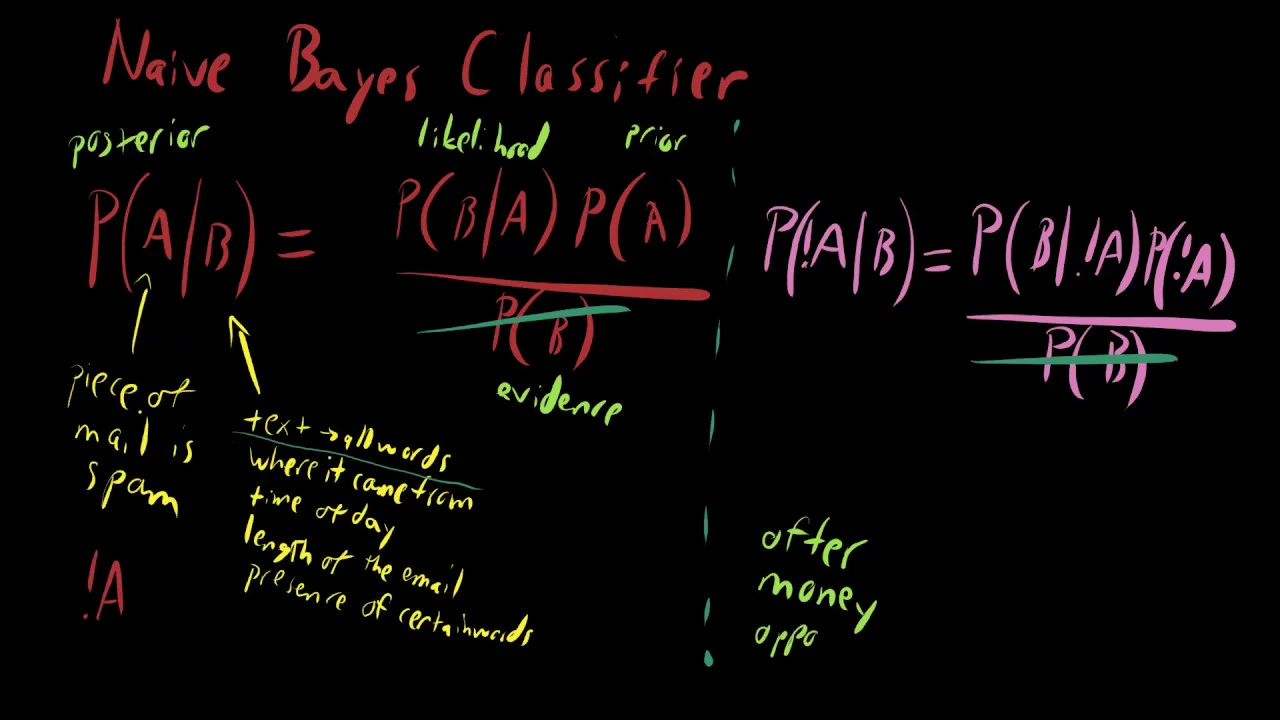 Naive Bayes Classifier
posterior
likelihood
prior
P(A|B) =
P(B|A) P(A)
P(B)
evidence
piece of
mail is
spam
!A
text → all words
where it came from
time of day
length of the email
presence of certain words
P(!A|B) =
P(B|!A) P(!A)
P(B)
offer
money
oppo